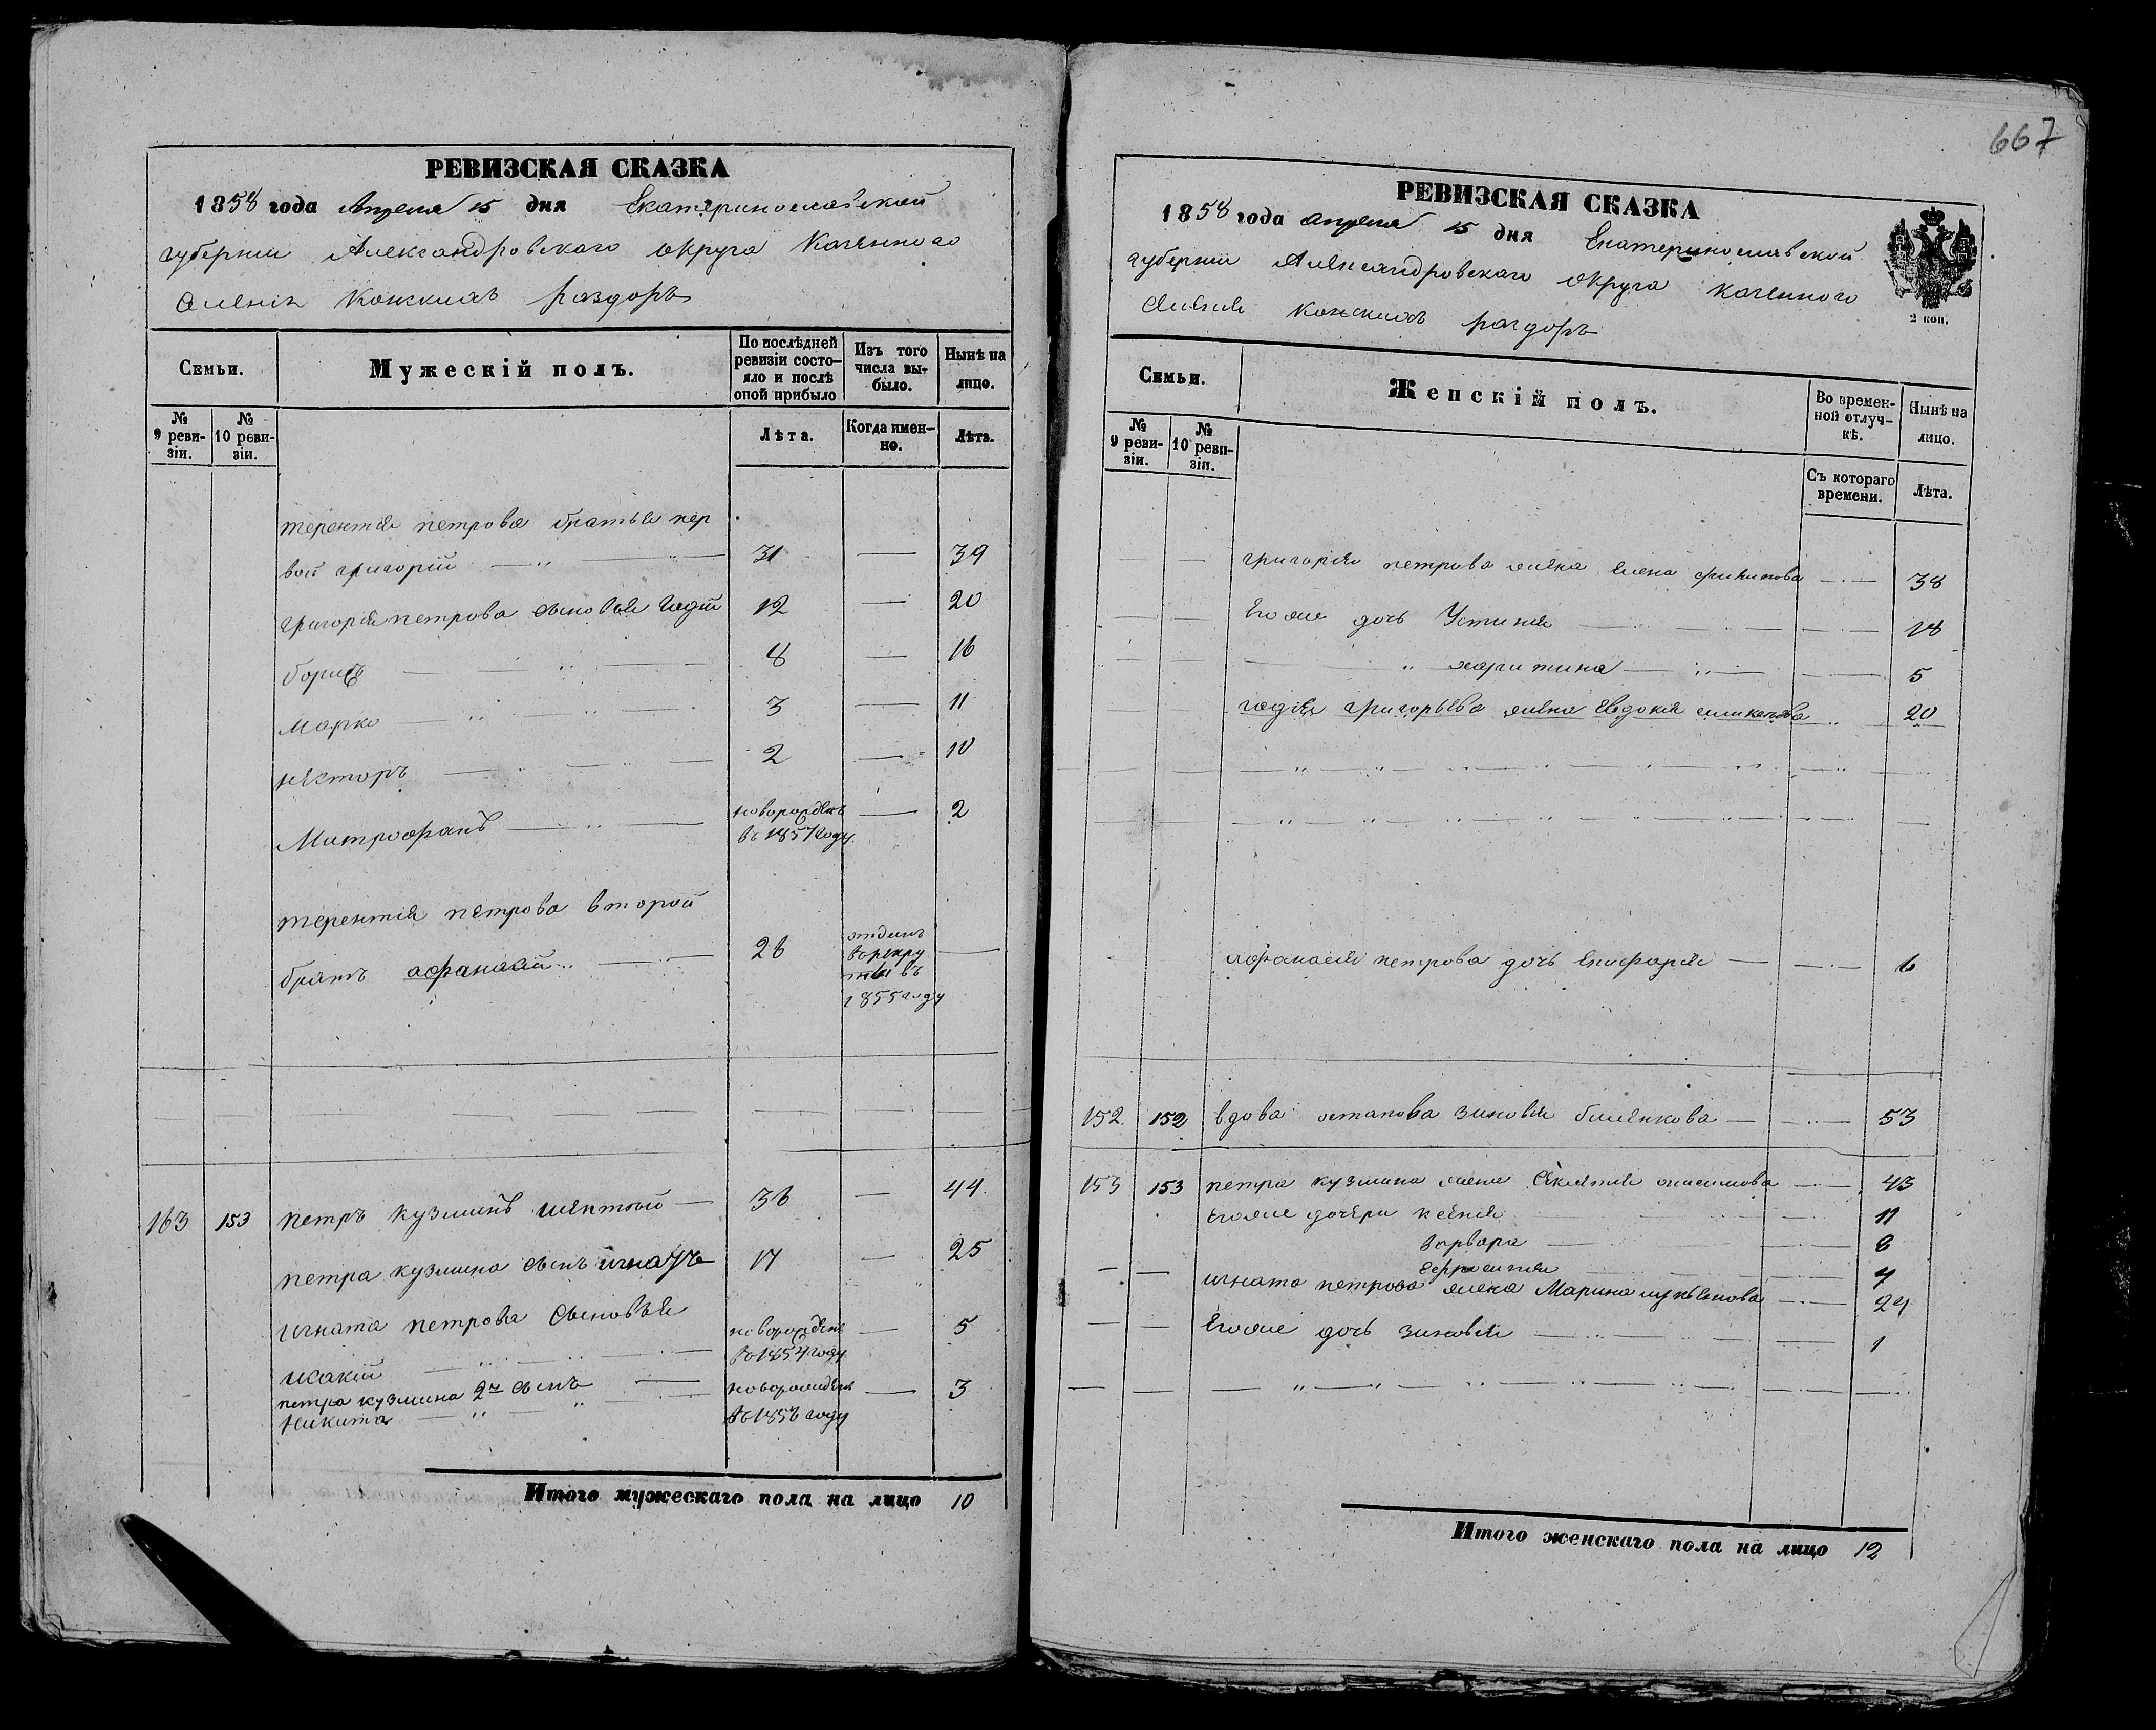 РЕВИЗСКАЯ СКАЗКА
1858 года Апреля 15 дня Екатеринославской
губернии Александровскаго округа Казенного
селения Конскихъ раздоръ
Семьи.
Мужескій полъ.
По послѣдней ревизіи состо-
яло и послѣ
оной прибыло
Изъ того
числа вы-
было.
Нынѣ на
лицо.
№
9 реви-
зіи.
№
10 реви-
зіи.
Лѣта.
Когда имен-
но.
Лѣта.
терентія петрова братья пер
вой григорій 31 39
григорія петрова сыновья 12 20
борисъ 8 16
марко 3 11
нЕкторъ 2 10
Митрофанъ новорожденъ 2
въ 1857 году
терентія петрова второй
братъ афанасій 26 отданъ
в рекру
ты въ
1855 году
163 153 петръ кузминъ 36 44
петра кузмина сынъ игнатъ 17 25
игната петрова сыновья
исакій новорожденъ 5
въ 1854 году
петра кузмина 2й сынъ
Никита новорожденъ 3
въ 1856 году
Итого мужескаго пола на лицо 10
667
РЕВИЗСКАЯ СКАЗКА
1858 года апреля 15 дня Екатеринославской
губернии Александровскаго округа казенного
селения Конскихъ раздоръ
2 коп.
Семьи.
Женскій полъ.
Во времен-
ной отлуч-
кѣ.
Нынѣ на
лицо.
№
9 реви-
зіи.
№
10 реви-
зіи.
Съ котораго
времени.
Лѣта.
григорія петрова жена елена филипова 38
Его же дочь Устинія 18
харитина 5
григорьева жена Евдокія 20
афанасія петрова дочь епифарія 6
152 152 вдова остапова зиновія 53
153 153 петра кузмина жена анисимова 43
Его же дочери ксенія 11
варвара 8
Ефросинія 4
игната петрова жена Марина лукьянова 24
Его же дочь зиновія 1
Итого женскаго пола на лицо 12